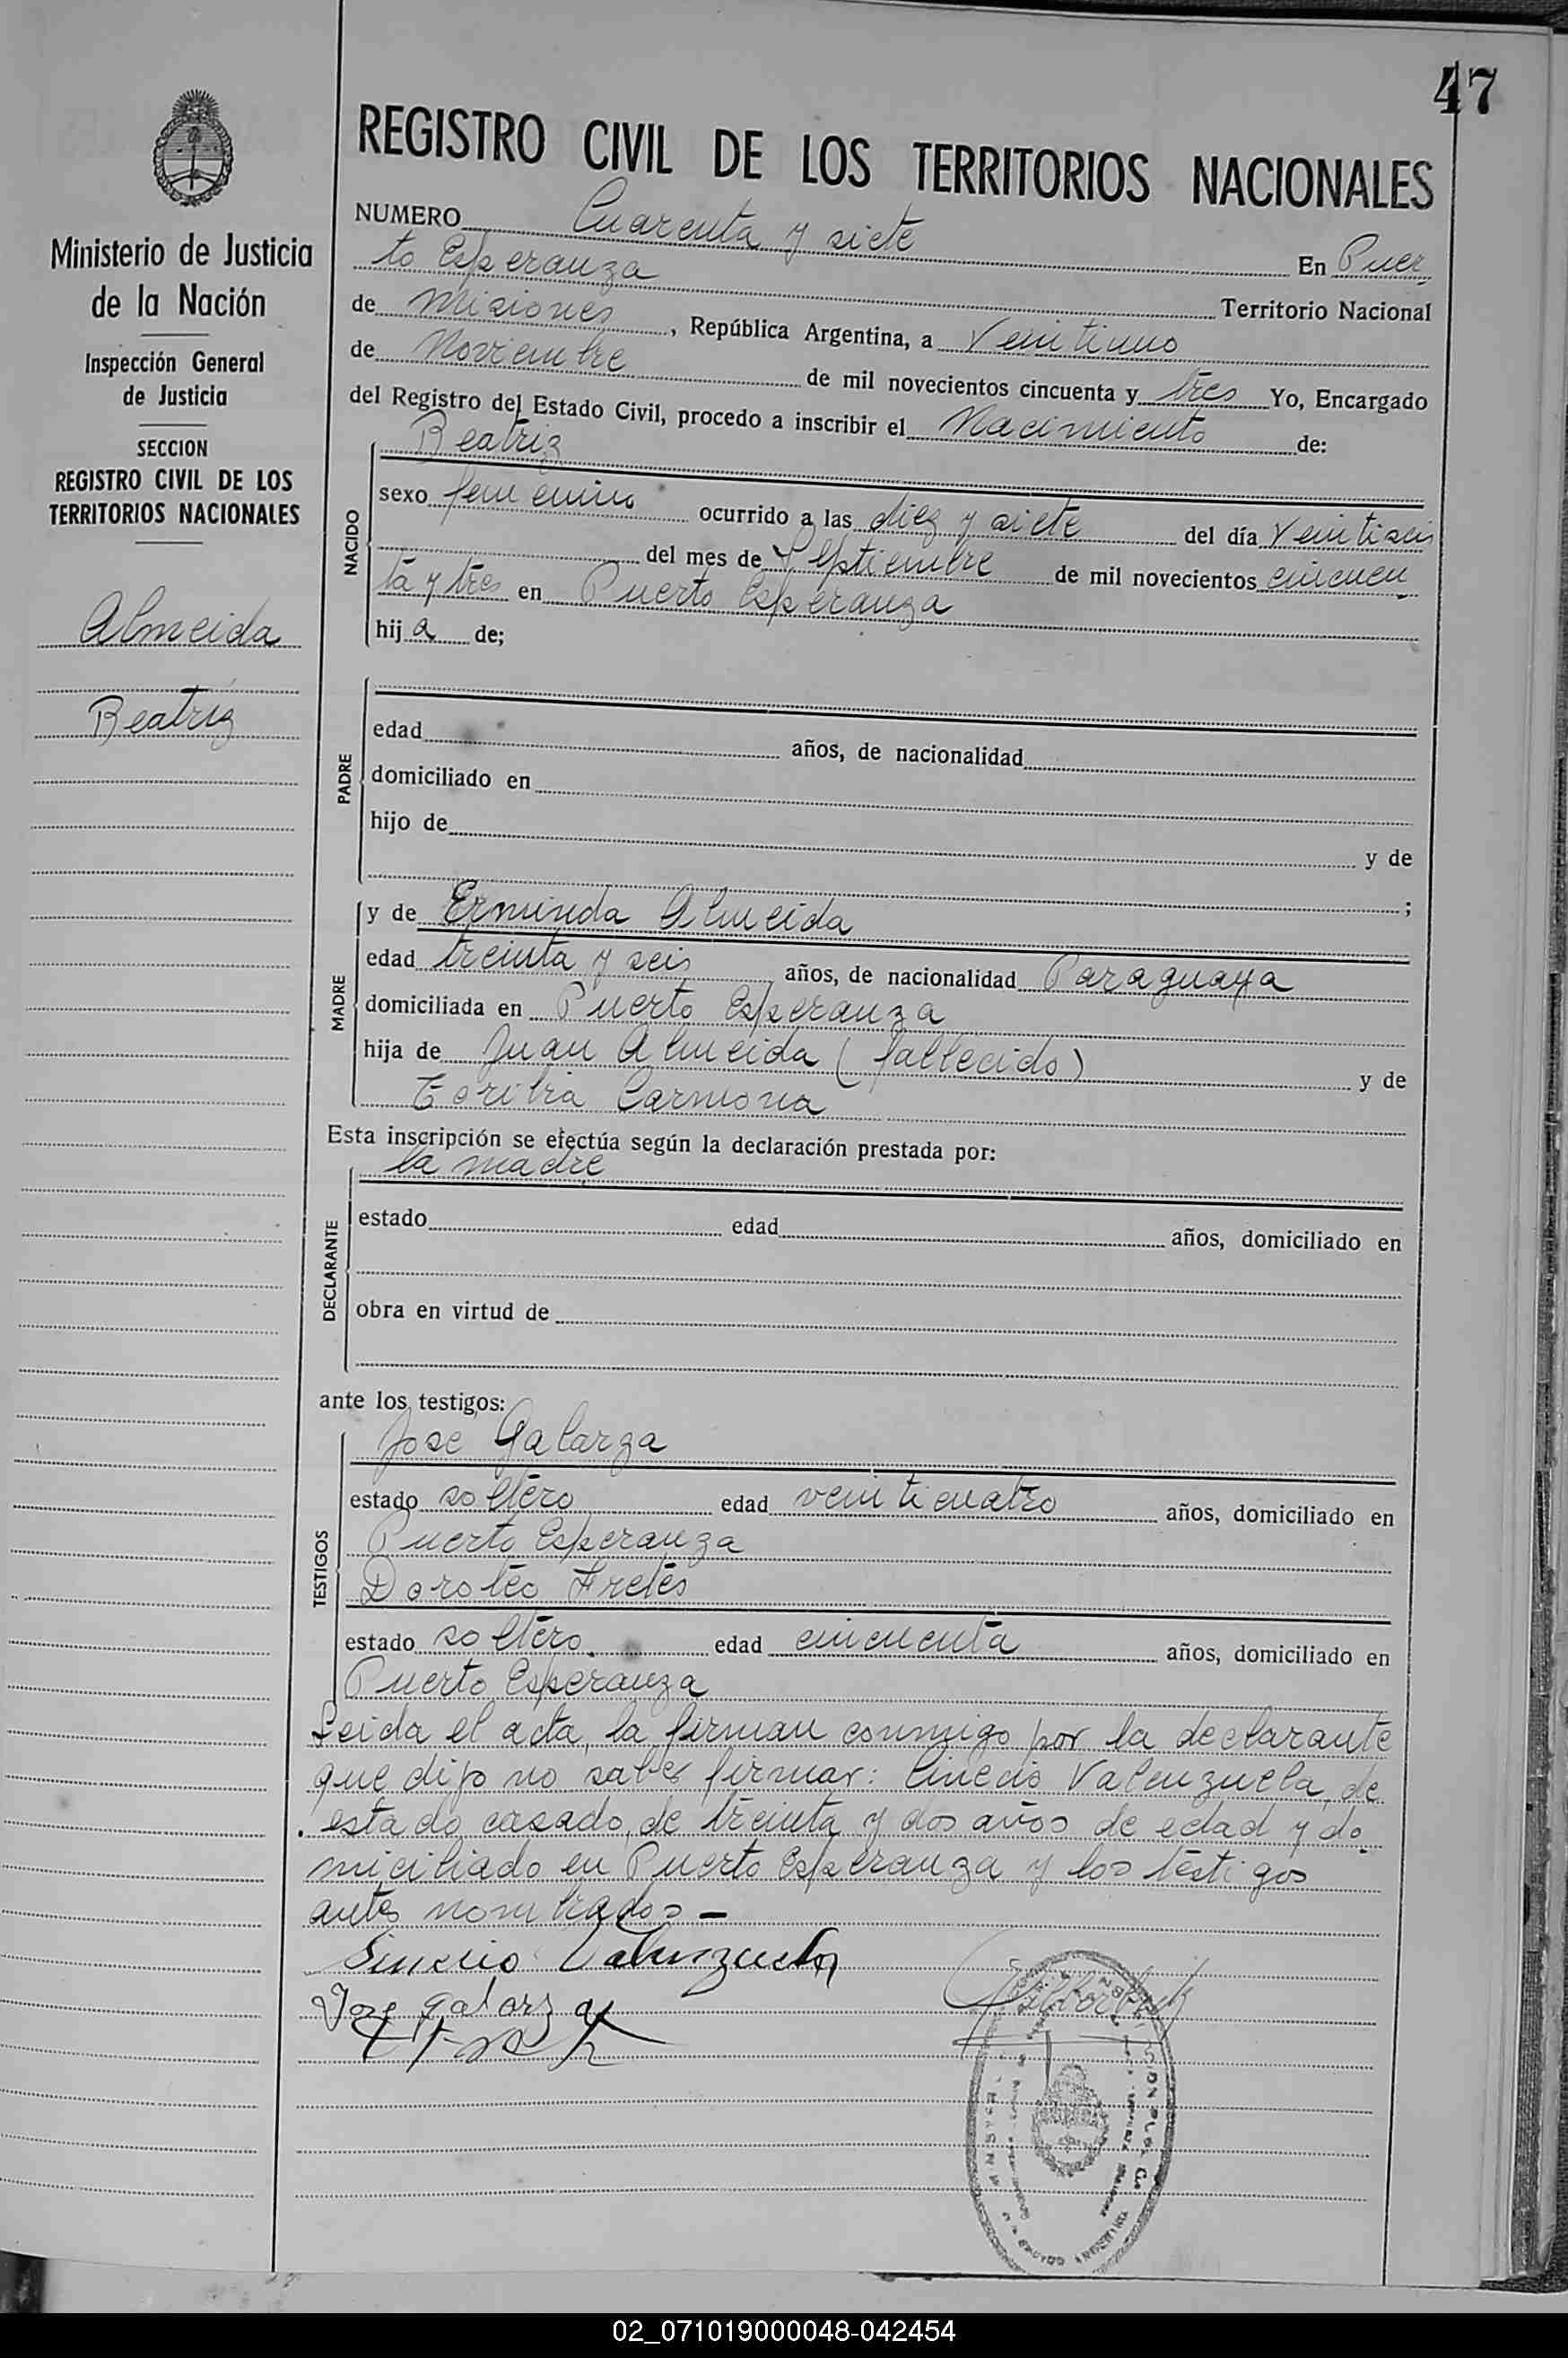 47
REGISTRO CIVIL DE LOS TERRITORIOS NACIONALES
Ministerio de Justicia
de la Nación
Inspección General
de Justicia
SECCION
REGISTRO CIVIL DE LOS
TERRITORIOS NACIONALES
Almeida
Beatriz
NUMERO Cuarenta y siete En Puer
to Esperanza Territorio Nacional
de Misiones, República Argentina, a Veintiuno
de Noviembre de mil novecientos cincuenta y tres Yo, Encargado
del Registro del Estado Civil, procedo a inscribir el Nacimiento de:
NACIDO
Beatriz
sexo femenino ocurrido a las diez y siete del día Veintiseis
del mes de Septiembre de mil novecientos cincuen
ta y tres en Puerto Esperanza
hija de;
PADRE
edad años, de nacionalidad
domiciliado en
hijo de y de
;
MADRE
y de Erminda Almeida
edad treinta y seis años, de nacionalidad Paraguaya
domiciliada en Puerto Esperanza
hija de Juan Almeida (fallecido) y de
Toribia Carmona
Esta inscripción se efectúa según la declaración prestada por:
DECLARANTE
la madre
estado edad años, domiciliado en
obra en virtud de
ante los testigos:
TESTIGOS
Jose Galarza
estado soltero edad veinticuatro años, domiciliado en
Puerto Esperanza
Doroteo Fretes
estado soltero edad cincuenta años, domiciliado en
Puerto Esperanza
Leida el acta, la firman conmigo por la declarante
que dijo no saber firmar: Valenzuela, de
estado casado, de treinta y dos años de edad y do
miciliado en Puerto Esperanza y los testigos
antes nombrados –
Valenzuela
Jose Galarza
02_071019000048-042454